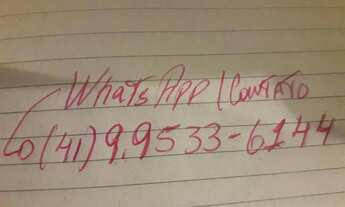 WhatsApp / Contato
(41) 9.9533-6144